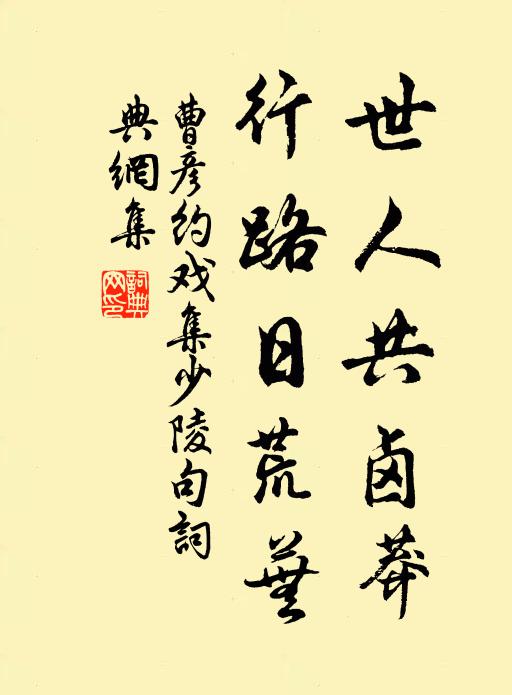 世人共卤莽
行路日荒蕪
曹彦约戏集少陵句詞
典網集
詞典
网印